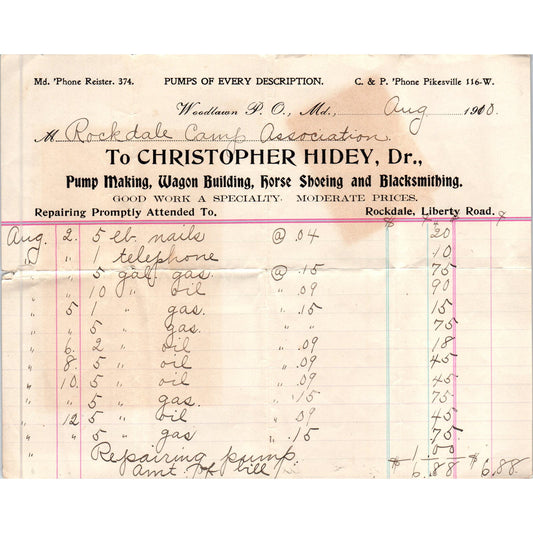 Md. 'Phone Reister. 374. PUMPS OF EVERY DESCRIPTION. C. & P. 'Phone Pikesville 116-W.
Woodlawn P. O., Md., Aug 1910.
M Rockdale Camp Association
To CHRISTOPHER HIDEY, Dr.,
Pump Making, Wagon Building, Horse Shoeing and Blacksmithing.
GOOD WORK A SPECIALTY. MODERATE PRICES.
Repairing Promptly Attended To. Rockdale, Liberty Road.
$ ¢ $ ¢
Aug. 2. 5 lb. nails @ .04 20
" " 1 telephone 10
" " 5 gal gas. @ .15 75
" " 10 " oil " .09 90
" 5 1 " gas. " .15 15
" " 5 " gas. 75
" 6. 2 " oil " .09 18
" 8. 5 " oil " .09 45
" 10. 5 " oil " .09 45
" " 5 " gas. " .15 75
" 12 5 " oil " .09 45
" " 5 " gas " .15 75
Repairing pump 1 00
Amt. of bill $ 6.88 $ 6.88